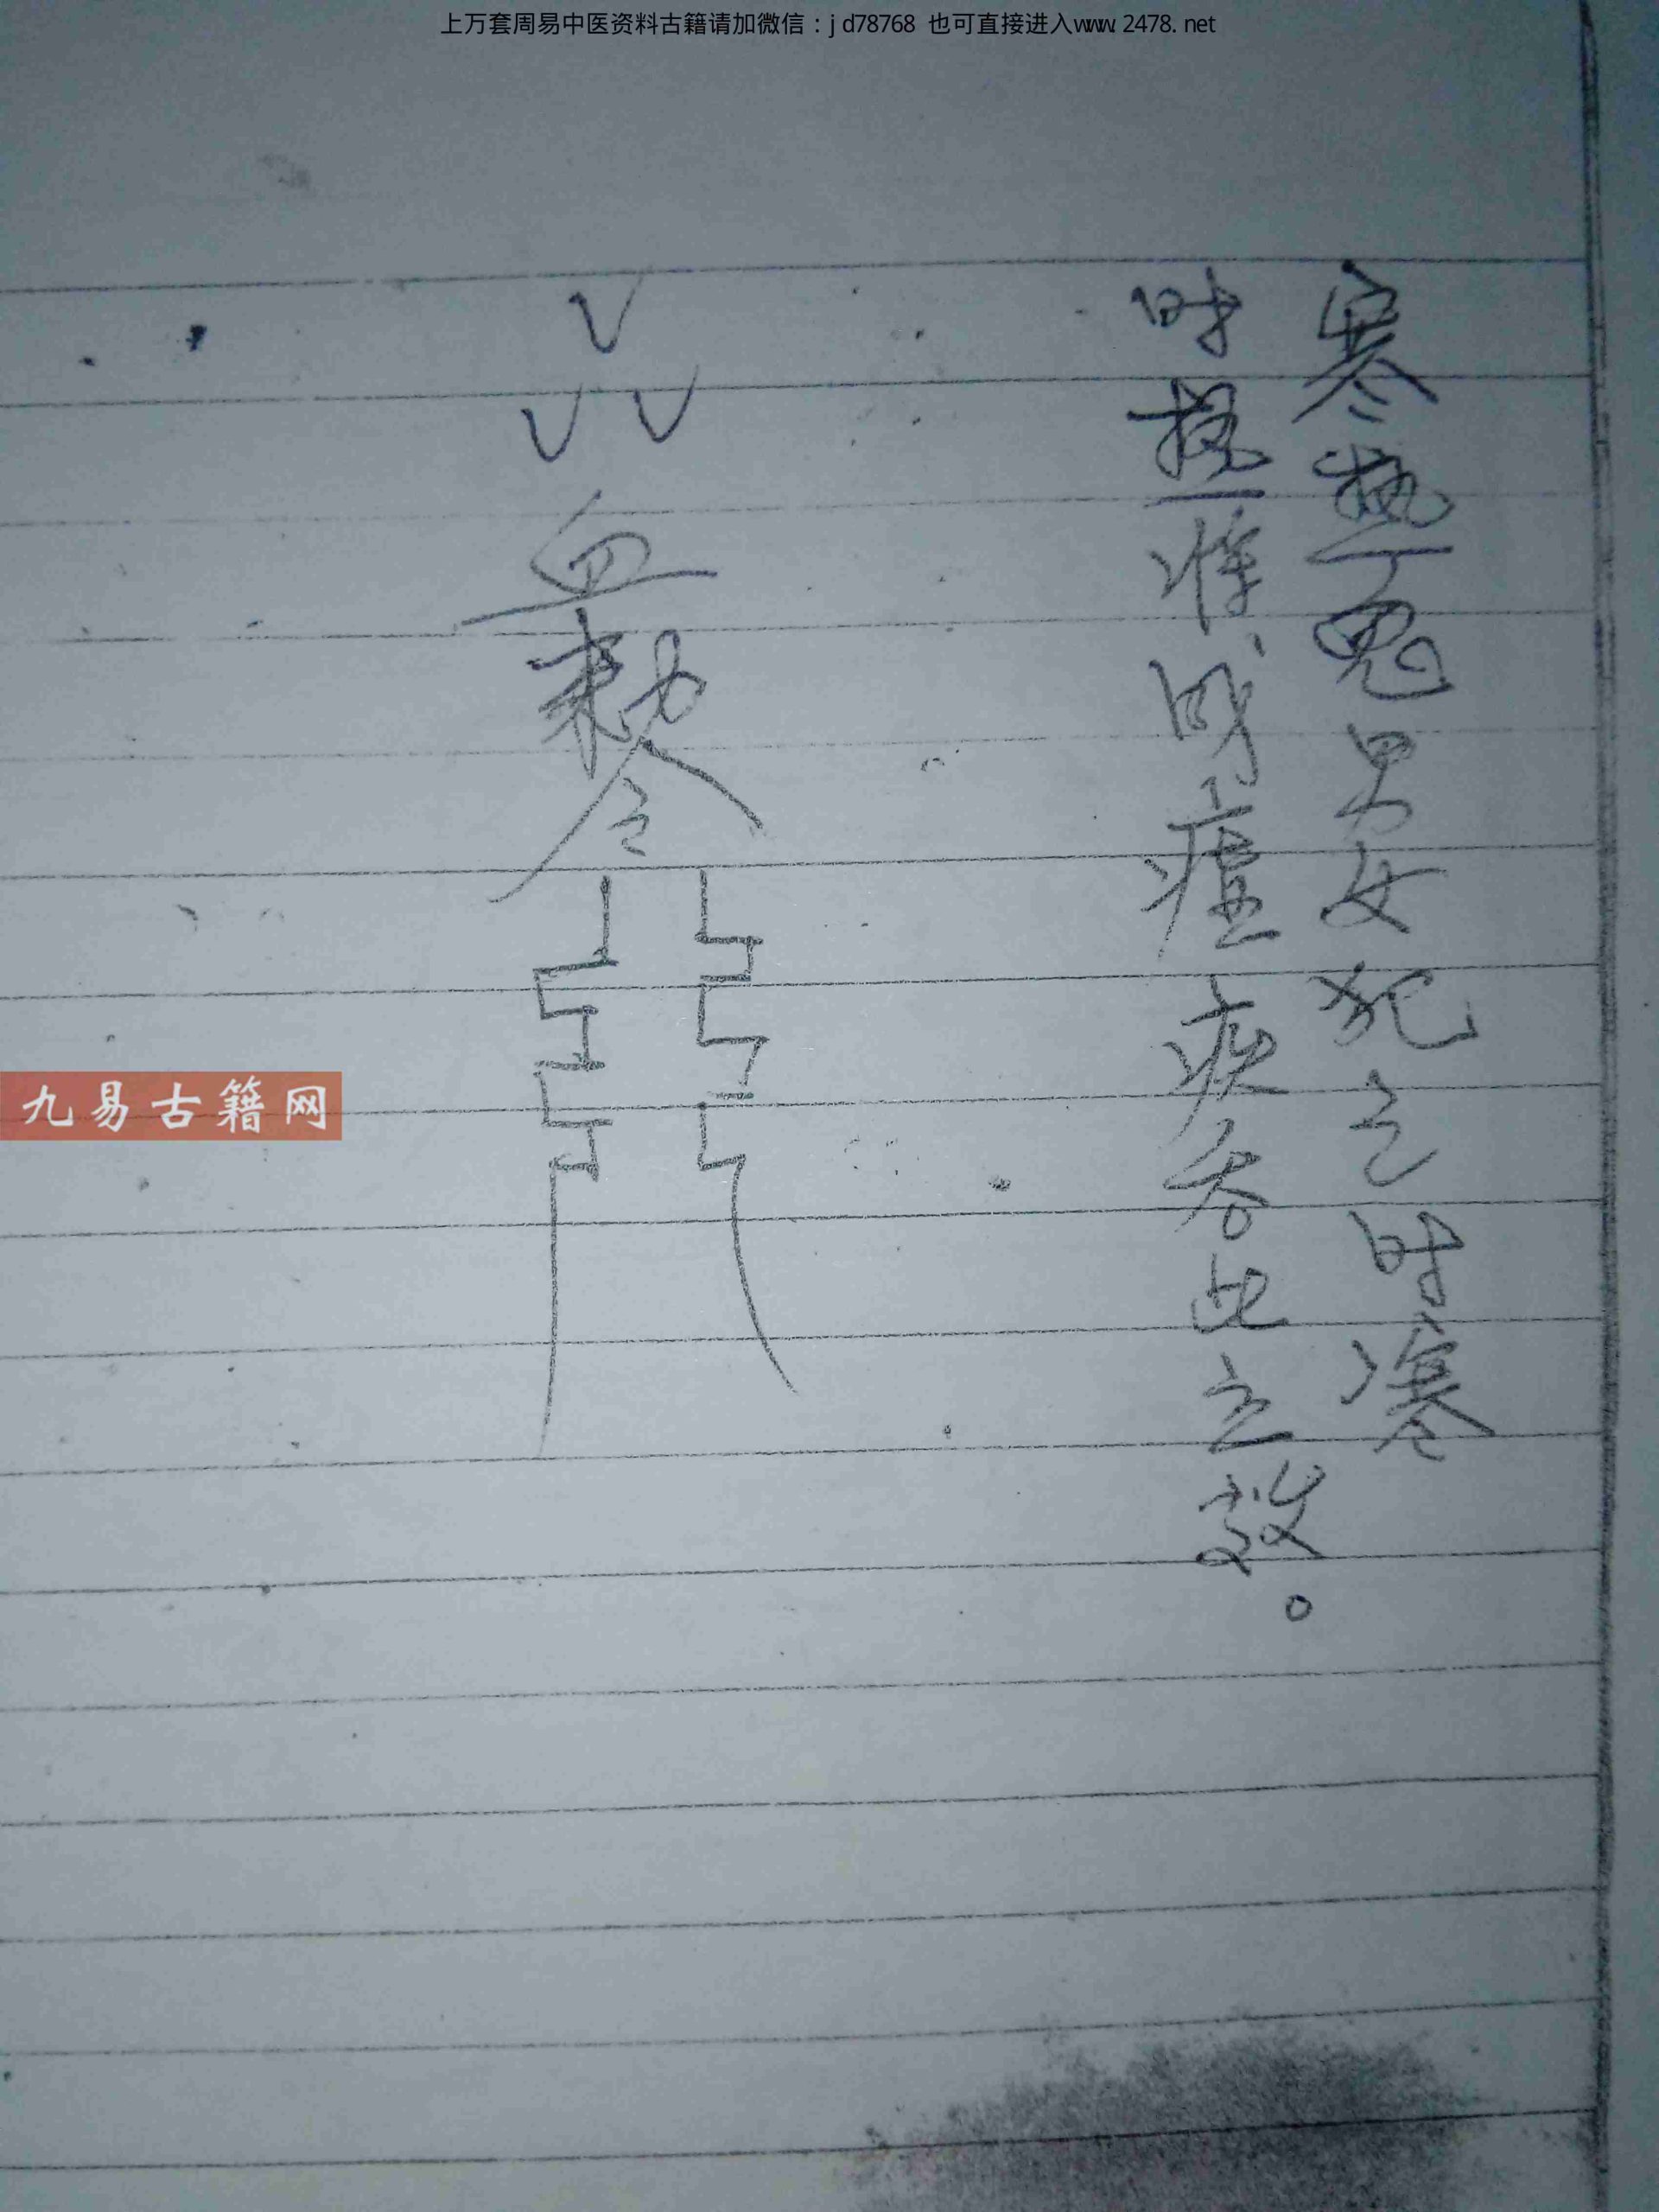 上万套周易中医资料古籍请加微信：jd78768 也可直接进入www.2478.net
寒热鬼男女犯之时寒
时热准成瘧疾吞此立效。
敕令
九易古籍网